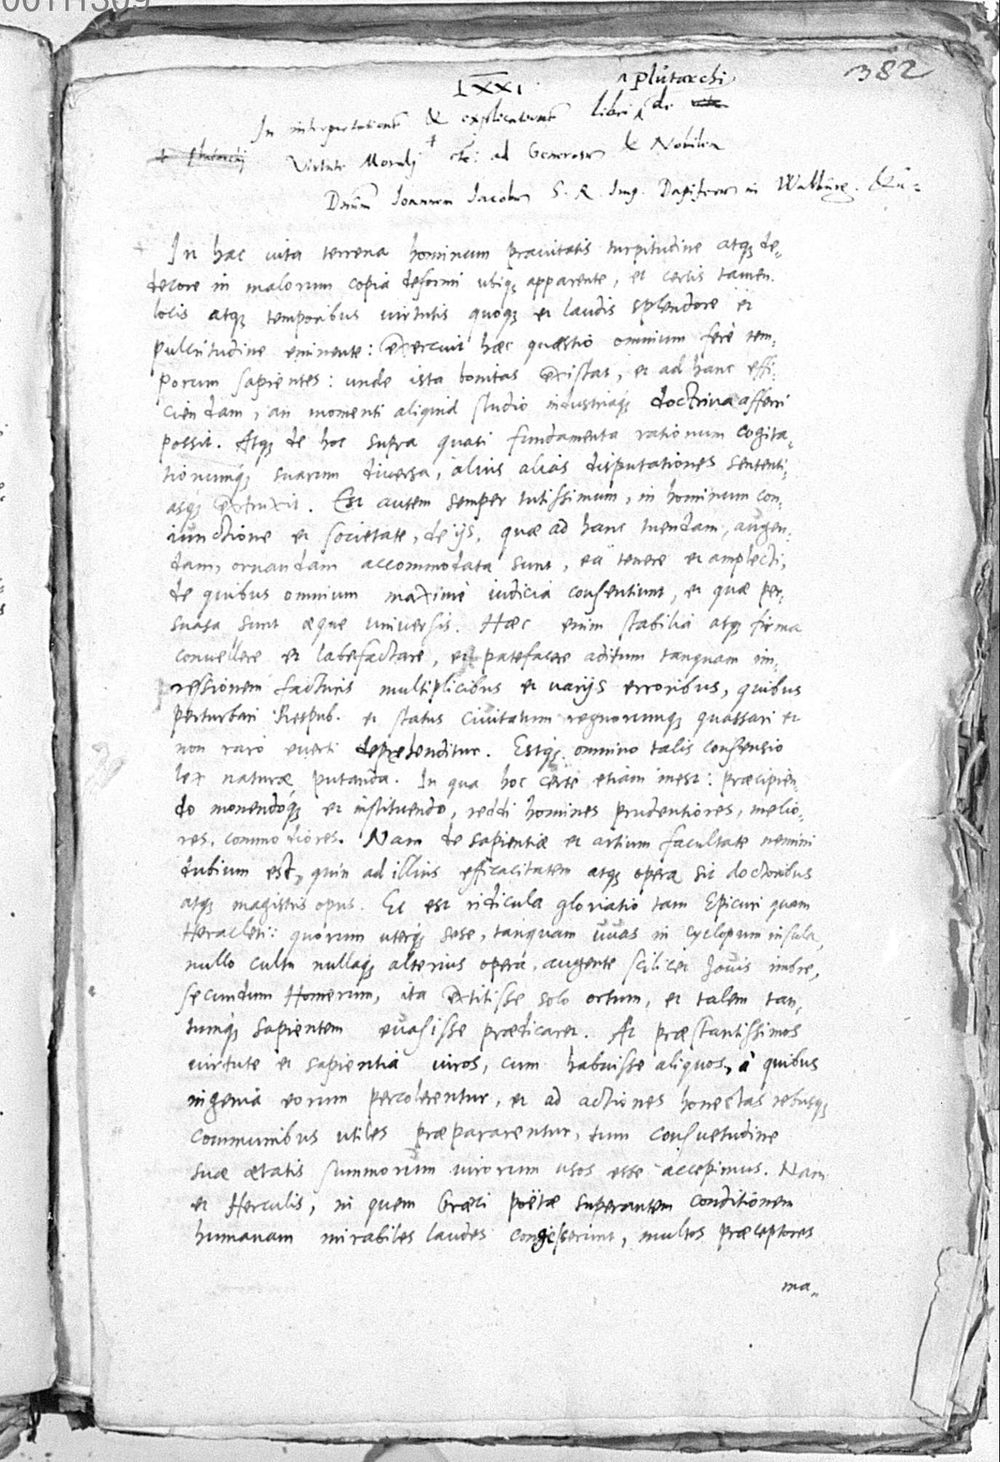 00111309
382
LXXI
^ Plutarchi
In interpretationem & explicationem libri ^ de
Virtute Morali + etc: ad Generosum & Nobilem
Dnum Joannem Jacobum S. R. Imp. Dapiferum in Walburg. &c:
In hac vita terrena hominum prauitatis turpitudine atq; de-
decore in malorum copia deformi ubiq; apparente, et certis tamen
locis atq; temporibus virtutis quoq; et laudis splendore et
pulcritudine eminente: Exercuit hæc quæstio omnium ferè tem-
porum sapientes: unde ista bonitas existat, et ad hanc effi-
ciendam, an momenti aliquid studio industriaq; doctrina afferri
possit. Atq; de hoc supra quasi fundamenta rationum cogita-
tionumq; suarum diuersa, alius alias disputationes sententi-
asq; extruxit. Est autem semper tutissimum, in hominum con-
iunctione et societate, de ijs, quæ ad hanc tuendam, augen-
dam, ornandam accommodata sunt, ea tenere et amplecti,
de quibus omnium maximè iudicia consentiunt, et quæ per-
suasa sunt æque vniuersis. Hæc enim stabilia atq; firma
conuellere et labefactare, et patefacere aditum tanquam im-
pressionem facturis multiplicibus et varijs erroribus, quibus
perturbari Respub. et status ciuitatum regnorumq; quassari et
non raró euerti deprehenditur. Estq; omnino talis consensio
lex naturæ putanda. In qua hoc certè etiam inest: præcipien-
do monendoq; et instituendo, reddi homines prudentiores, melio-
res, commodiores. Nam de sapientiæ et artium facultate nemini
dubium est, quin ad illius efficacitatem atq; opera sit doctoribus
atq; magistris opus. Et est ridicula gloriatio tam Epicuri quam
Heracleti: quorum uterq; sese, tanquam uuas in Cyclopum insula,
nullo cultu nullaq; alterius opera, augente scilicet Jouis imbre,
secundum Homerum, ita extitisse solo ortum, et talem tan-
tumq; sapientem euasisse prædicaret. At præstantissimos
virtute et sapientiâ viros, cum habuisse aliquos, à quibus
ingenia eorum percolerentur, et ad actiones honestas rebusq;
communibus utiles præpararentur, tum consuetudine
suæ ætatis summorum virorum usos esse accepimus. Nam
et Herculis, in quem Græci poëtæ superantem conditionem
humanam mirabiles laudes congesserunt, multos præceptores
ma-